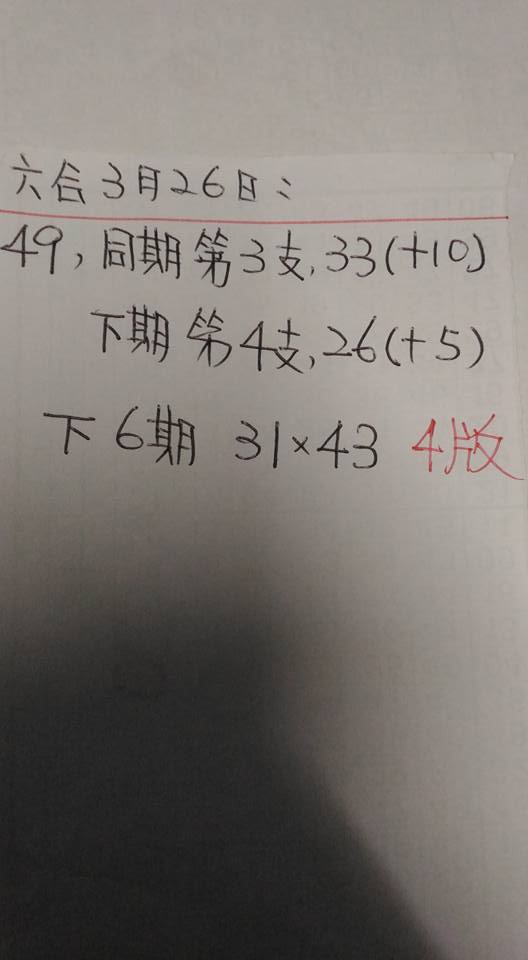 六合3月26日:
49,同期第3支,33(+10)
下期第4支,26(+5)
下6期 31×43 4版